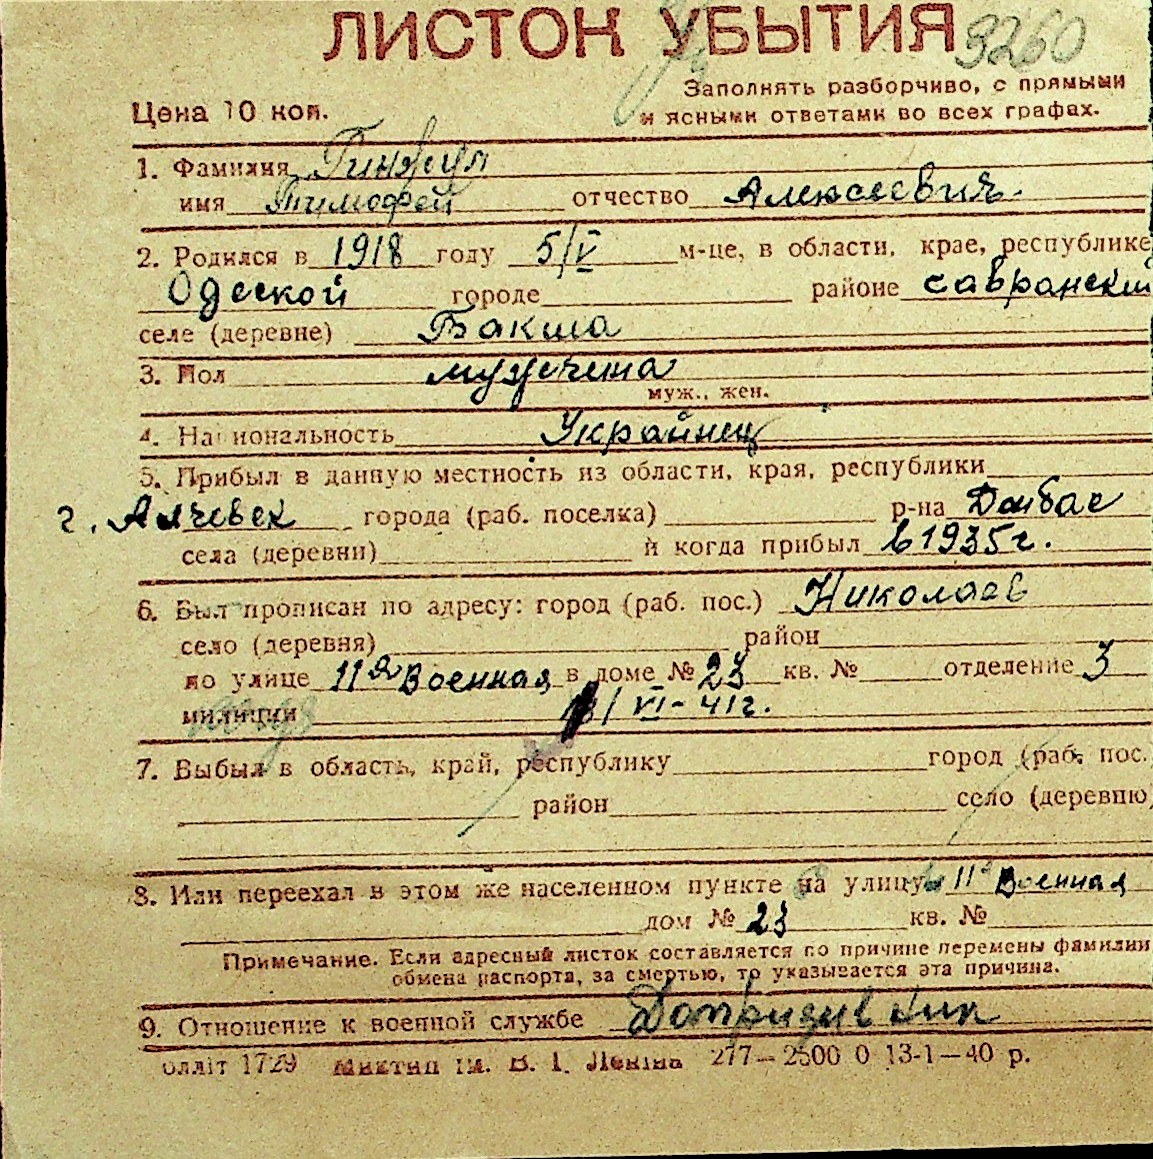 ЛИСТОК УБЫТИЯ 3260
Заполнять разборчиво, с прямыми
Цена 10 коп. и ясными ответами во всех графах.
1. Фамилия Гинжул
имя Тимофей отчество Алексеевич.
2. Родился в 1918 году 5/V м-це, в области, крае, республике
Одеской городе районе Савранский
селе (деревне) Бакша
3. Пол мужчина
муж., жен.
4. Национальность Украйнец
5. Прибыл в данную местность из области, края, республики
г. Алчевск города (раб. поселка) р-на Донбас
села (деревни) и когда прибыл в 1935 г.
6. Был прописан по адресу: город (раб. пос.) Николаев
село (деревня) район
по улице 11ая Военная в доме № 23 кв. № отделение 3
милиции / VI-41г.
7. Выбыл в область, край, республику город (раб. пос.)
район село (деревню)
8. Или переехал в этом же населенном пункте на улицу 11я Военная
дом № 23 кв. №
Примечание. Если адресный листок составляется по причине перемены фамилии
обмена паспорта, за смертью, то указывается эта причина.
9. Отношение к военной службе Допризывник
олліт 1729 ім. В. І. Леніна 277—2500 0 13-1—40 р.